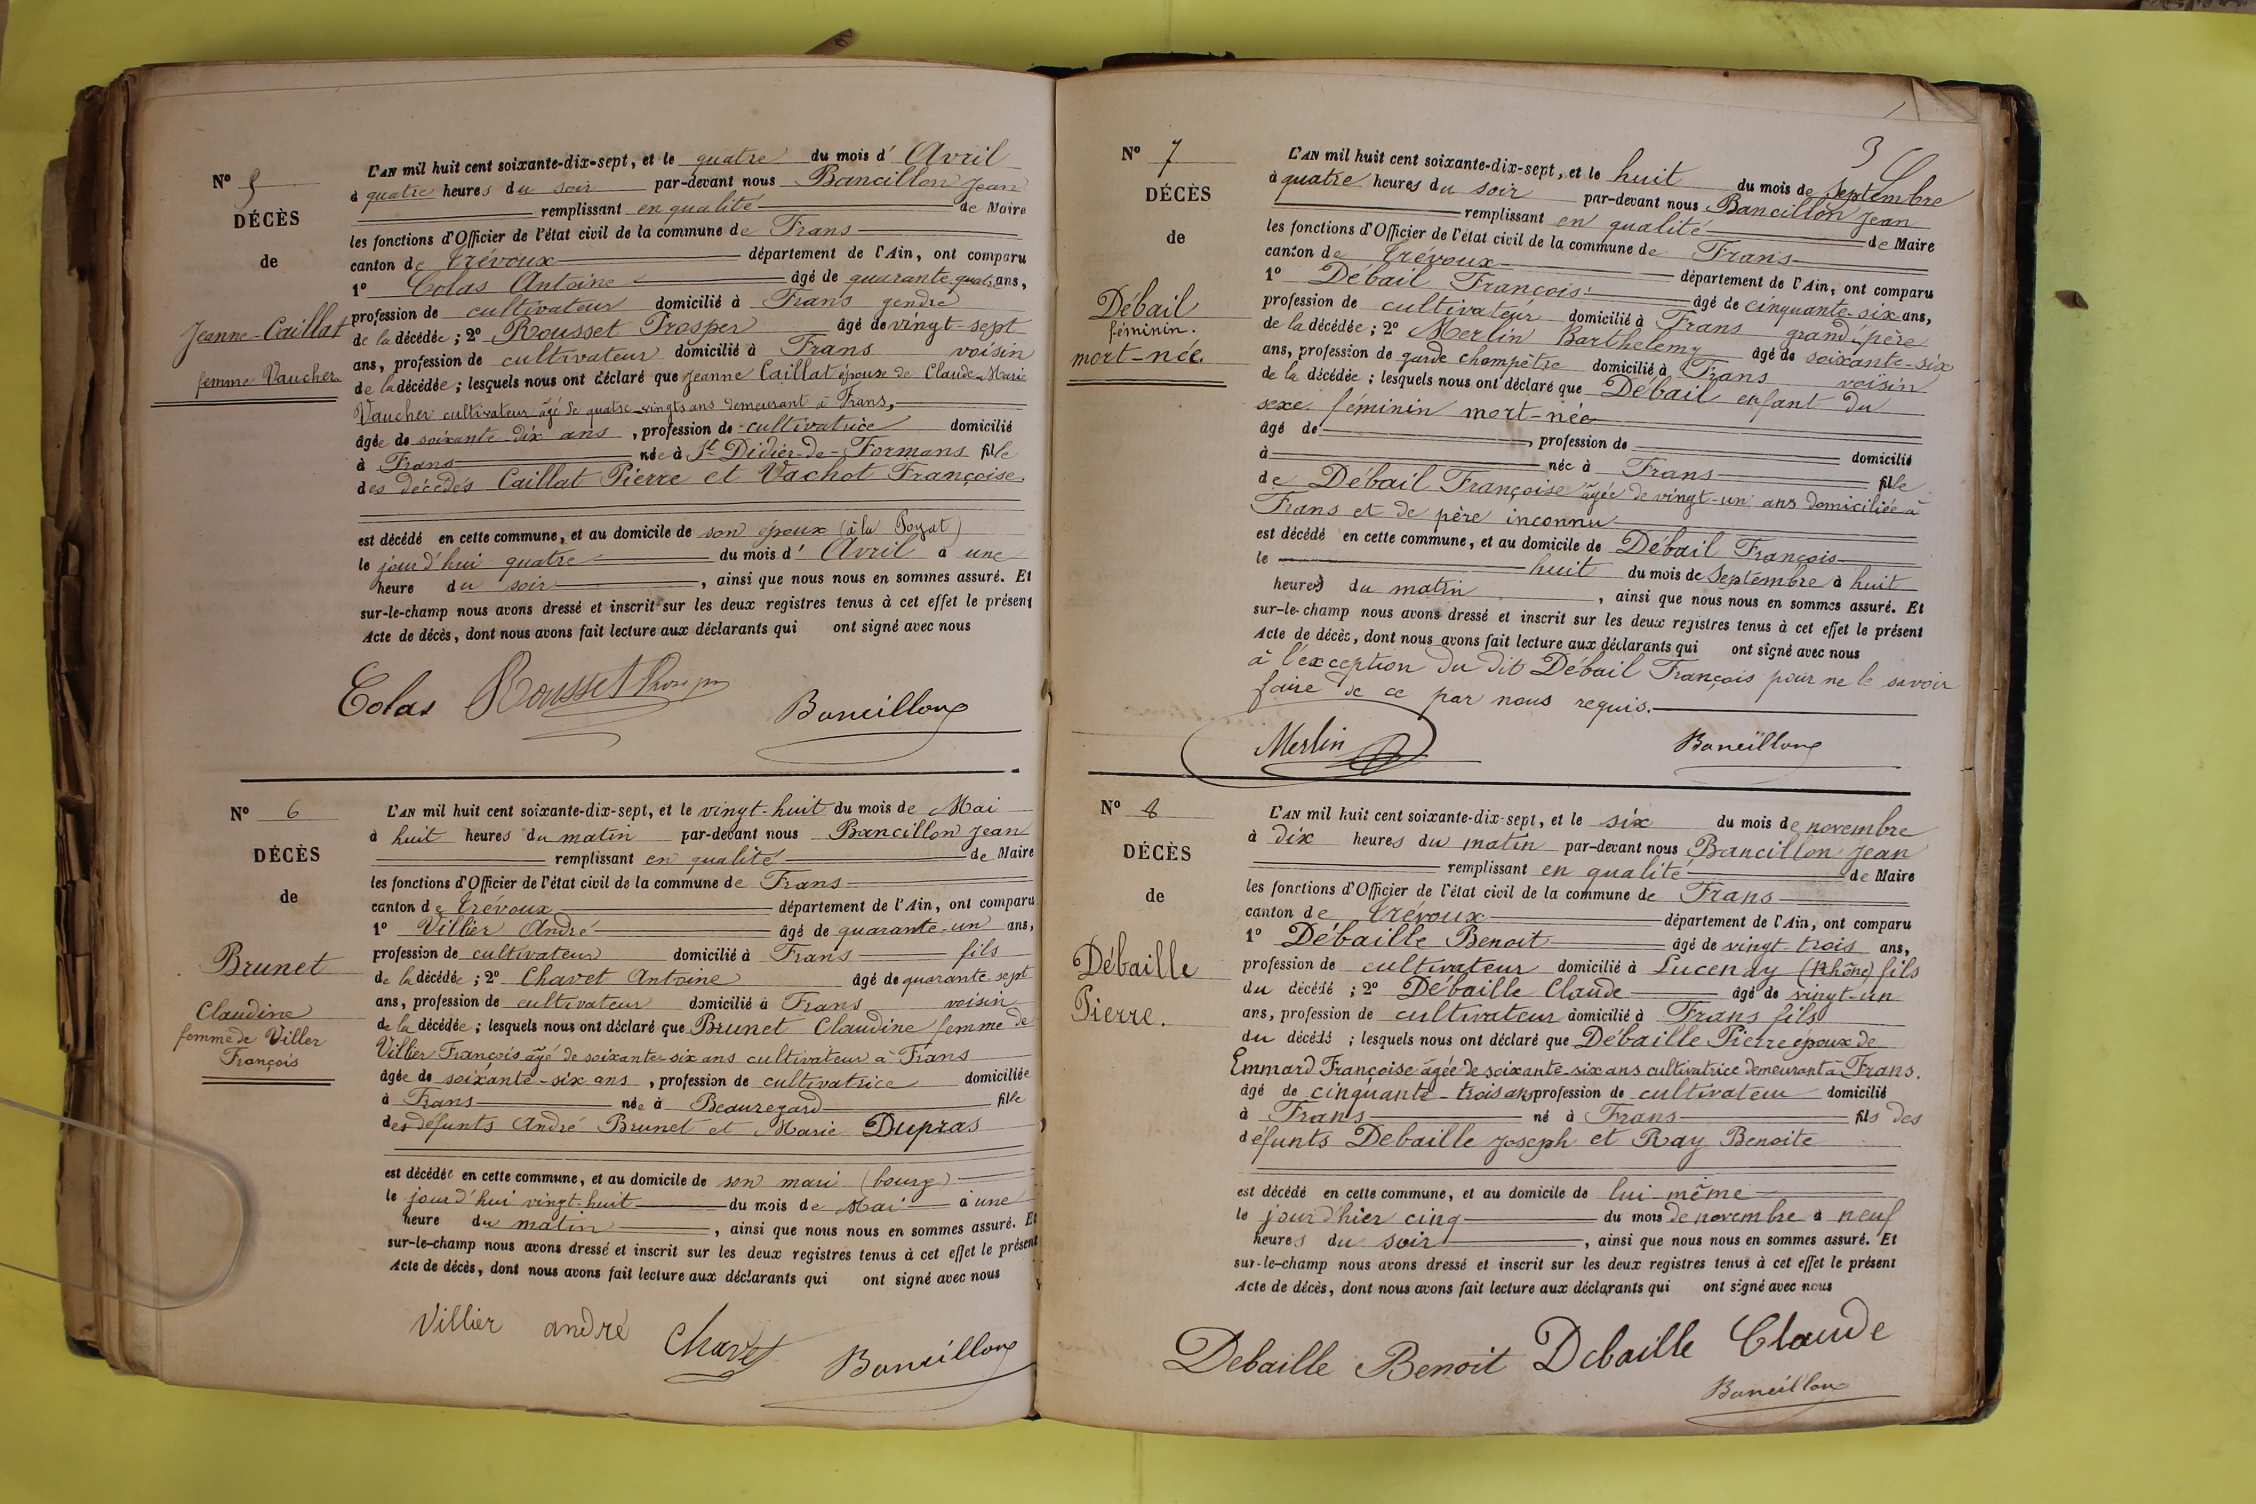 N° 5
DÉCÈS
de
Jeanne Caillat
femme Vaucher
L'AN mil huit cent soixante-dix-sept, et le quatre du mois d' Avril
à quatre heures du soir par-devant nous Bancillon Jean
remplissant en qualité de Maire
les fonctions d'Officier de l'état civil de la commune de Frans
canton de Trévoux département de l'Ain, ont comparu
1° Colas Antoine âgé de quarante quatre ans,
profession de cultivateur domicilié à Frans gendre
de la décédée ; 2° Rousset Prosper âgé de vingt-sept
ans, profession de cultivateur domicilié à Frans voisin
de la décédée ; lesquels nous ont déclaré que Jeanne Caillat épouse de Claude Marie
Vaucher cultivateur âgé de quatre-vingts ans demeurant à Frans,
âgée de soixante-dix ans , profession de cultivatrice domicilié
à Frans née à St Didier-de-Formans fille
des décédés Caillat Pierre et Vachot Françoise
est décédé en cette commune, et au domicile de son époux (à la Poyat)
le jour d'hui quatre du mois d' Avril à une
heure du soir , ainsi que nous nous en sommes assuré. Et
sur-le-champ nous avons dressé et inscrit sur les deux registres tenus à cet effet le présent
Acte de décès, dont nous avons fait lecture aux déclarants qui ont signé avec nous
Colas Rousset Prosper
Bancillon
N° 6
DÉCÈS
de
Brunet
Claudine
femme de Viller
François
L'AN mil huit cent soixante-dix-sept, et le vingt-huit du mois de Mai
à huit heures du matin par-devant nous Bancillon Jean
remplissant en qualité de Maire
les fonctions d'Officier de l'état civil de la commune de Frans
canton de Trévoux département de l'Ain, ont comparu
1° Villier André âgé de quarante-un ans,
profession de cultivateur domicilié à Frans fils
de la décédée ; 2° Chavet Antoine âgé de quarante sept
ans, profession de cultivateur domicilié à Frans voisin
de la décédée ; lesquels nous ont déclaré que Brunet Claudine femme de
Villier François âgé de soixante-six ans cultivateur à Frans
âgée de soixante-six ans , profession de cultivatrice domiciliée
à Frans née à Beauregard fille
des défunts André Brunet et Marie Dupras
est décédée en cette commune, et au domicile de son mari (bourg)
le jour d'hui vingt-huit du mois de Mai à une
heure du matin , ainsi que nous nous en sommes assuré. Et
sur-le-champ nous avons dressé et inscrit sur les deux registres tenus à cet effet le présent
Acte de décès, dont nous avons fait lecture aux déclarants qui ont signé avec nous
Villier andré Chavet
Bancillon
3
N° 7
DÉCÈS
de
Débail
féminin.
mort-née.
L'AN mil huit cent soixante-dix-sept, et le huit du mois de Septembre
à quatre heures du soir par-devant nous Bancillon Jean
remplissant en qualité de Maire
les fonctions d'Officier de l'état civil de la commune de Frans
canton de Trévoux département de l'Ain, ont comparu
1° Débail François âgé de cinquante-six ans,
profession de cultivateur domicilié à Frans grand-père
de la décédée ; 2° Merlin Barthelemy âgé de soixante-six
ans, profession de garde champêtre domicilié à Frans voisin
de la décédée ; lesquels nous ont déclaré que Débail enfant du
sexe féminin mort-née
âgé de , profession de domicilié
à née à Frans fille
de Débail Françoise âgée de vingt-un ans domiciliée à
Frans et de père inconnu
est décédé en cette commune, et au domicile de Débail François
le huit du mois de Septembre à huit
heures du matin , ainsi que nous nous en sommes assuré. Et
sur-le-champ nous avons dressé et inscrit sur les deux registres tenus à cet effet le présent
Acte de décès, dont nous avons fait lecture aux déclarants qui ont signé avec nous
à l'exception du dit Débail François pour ne le savoir
faire de ce par nous requis.
Merlin Bancillon
N° 8
DÉCÈS
de
Débaille
Pierre.
L'AN mil huit cent soixante-dix-sept, et le six du mois de novembre
à dix heures du matin par-devant nous Bancillon Jean
remplissant en qualité de Maire
les fonctions d'Officier de l'état civil de la commune de Frans
canton de Trévoux département de l'Ain, ont comparu
1° Débaille Benoit âgé de vingt trois ans,
profession de cultivateur domicilié à Lucenay (Rhône) fils
du décédé ; 2° Débaille Claude âgé de vingt-un
ans, profession de cultivateur domicilié à Frans fils
du décédé ; lesquels nous ont déclaré que Débaille Pierre époux de
Emmard Françoise âgée de soixante-six ans cultivatrice demeurant à Frans.
âgé de cinquante-trois ans profession de cultivateur domicilié
à Frans né à Frans fils des
défunts Debaille Joseph et Ray Benoite
est décédé en cette commune, et au domicile de lui même
le jour d'hier cinq du mois de novembre à neuf
heures du soir , ainsi que nous nous en sommes assuré. Et
sur-le-champ nous avons dressé et inscrit sur les deux registres tenus à cet effet le présent
Acte de décès, dont nous avons fait lecture aux déclarants qui ont signé avec nous
Debaille Benoit Debaille Claude
Bancillon